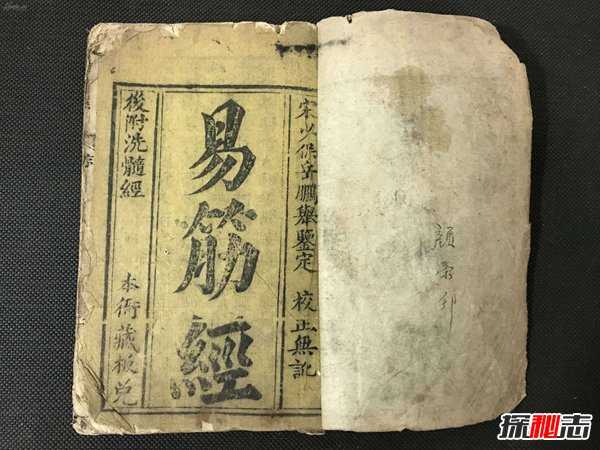 宋少保岳鵬舉鑒定 校正無訛
易筋經
後附洗髓經 本衙藏板兌
探秘志